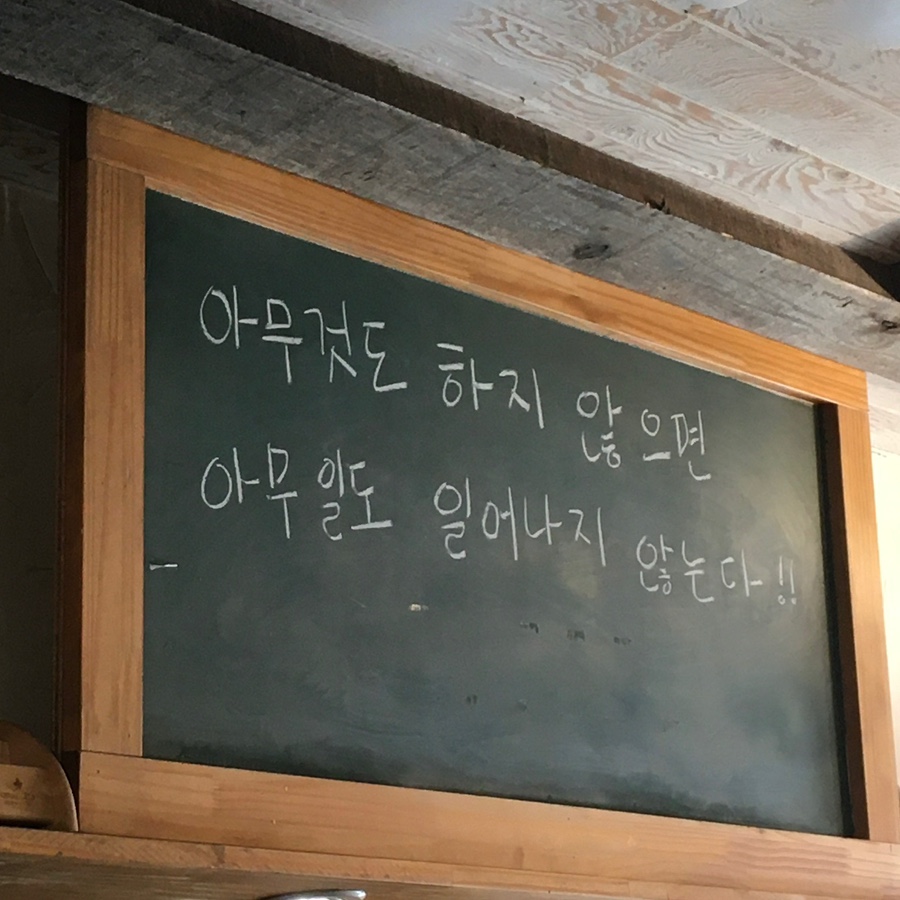 아무것도 하지 않으면
아무일도 일어나지 않는다!!